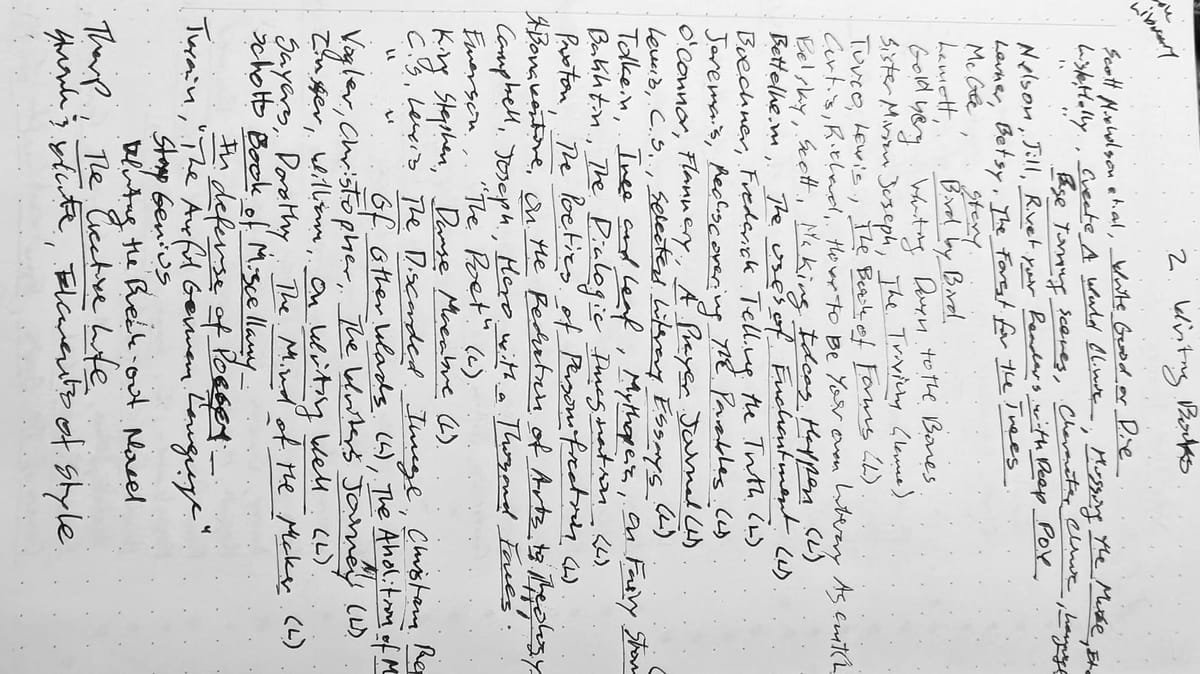 2 Writing Books
Scott Nicholson et al, Write Good or Die
Create A World Clinic, Missing the Muse,
" " Page Turning Scenes, Character Clinic,
Nelson, Jill, Rivet Your Readers with Deep POV
Lerner, Betsy, The Forest for the Trees
McGee, Story
Lamott, Bird by Bird
Goldberg Writing Down to the Bones
Sister Miriam Joseph, The Trivium (home)
Turco, Lewis, The Book of Forms (L)
Curtis, Richard, How to Be Your own Literary Agent (L
Belsky, Scott, Making Ideas Happen (L)
Bettelheim, The Uses of Enchantment (L)
Buechner, Frederick Telling the Truth (L)
Jeremais, Rediscovering the Parables (L)
O'Connor, Flannery, A Prayer Journal (L)
Lewis, C.S., Selected Literary Essays (L)
Tolkein, Tree and Leaf, Mythopeia, On Fairy
Bakhtin, The Dialogic Imagination (L)
Paxton, The Poetics of Personification (L)
St Bonaventure, On the Reduction of Arts to Theology
Campbell, Joseph, Hero with a Thousand Faces.
Emerson, "The Poet" (L)
King Stephen, Danse Macabre (L)
C.S. Lewis The Discarded Image, Christian
" " Of Other Worlds (L), The Abolition of M
Vogler, Christopher, The Writers Journey (L)
Zinsser, William, On Writing Well (L)
Sayers, Dorothy The Mind of the Maker (L)
Schotts Book of Miscellany
In defense of
Twain, "The Awful German Language"
Story Genius
Writing the Break-out Novel
Tharp, The Creative Life
Strunk & White, Elements of Style